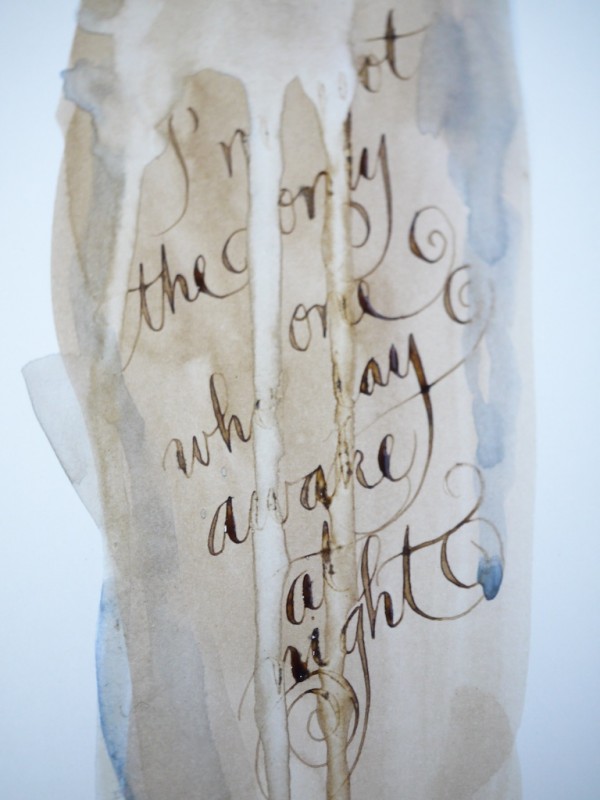 I'm not
the only
one
who lay
awake
at
night